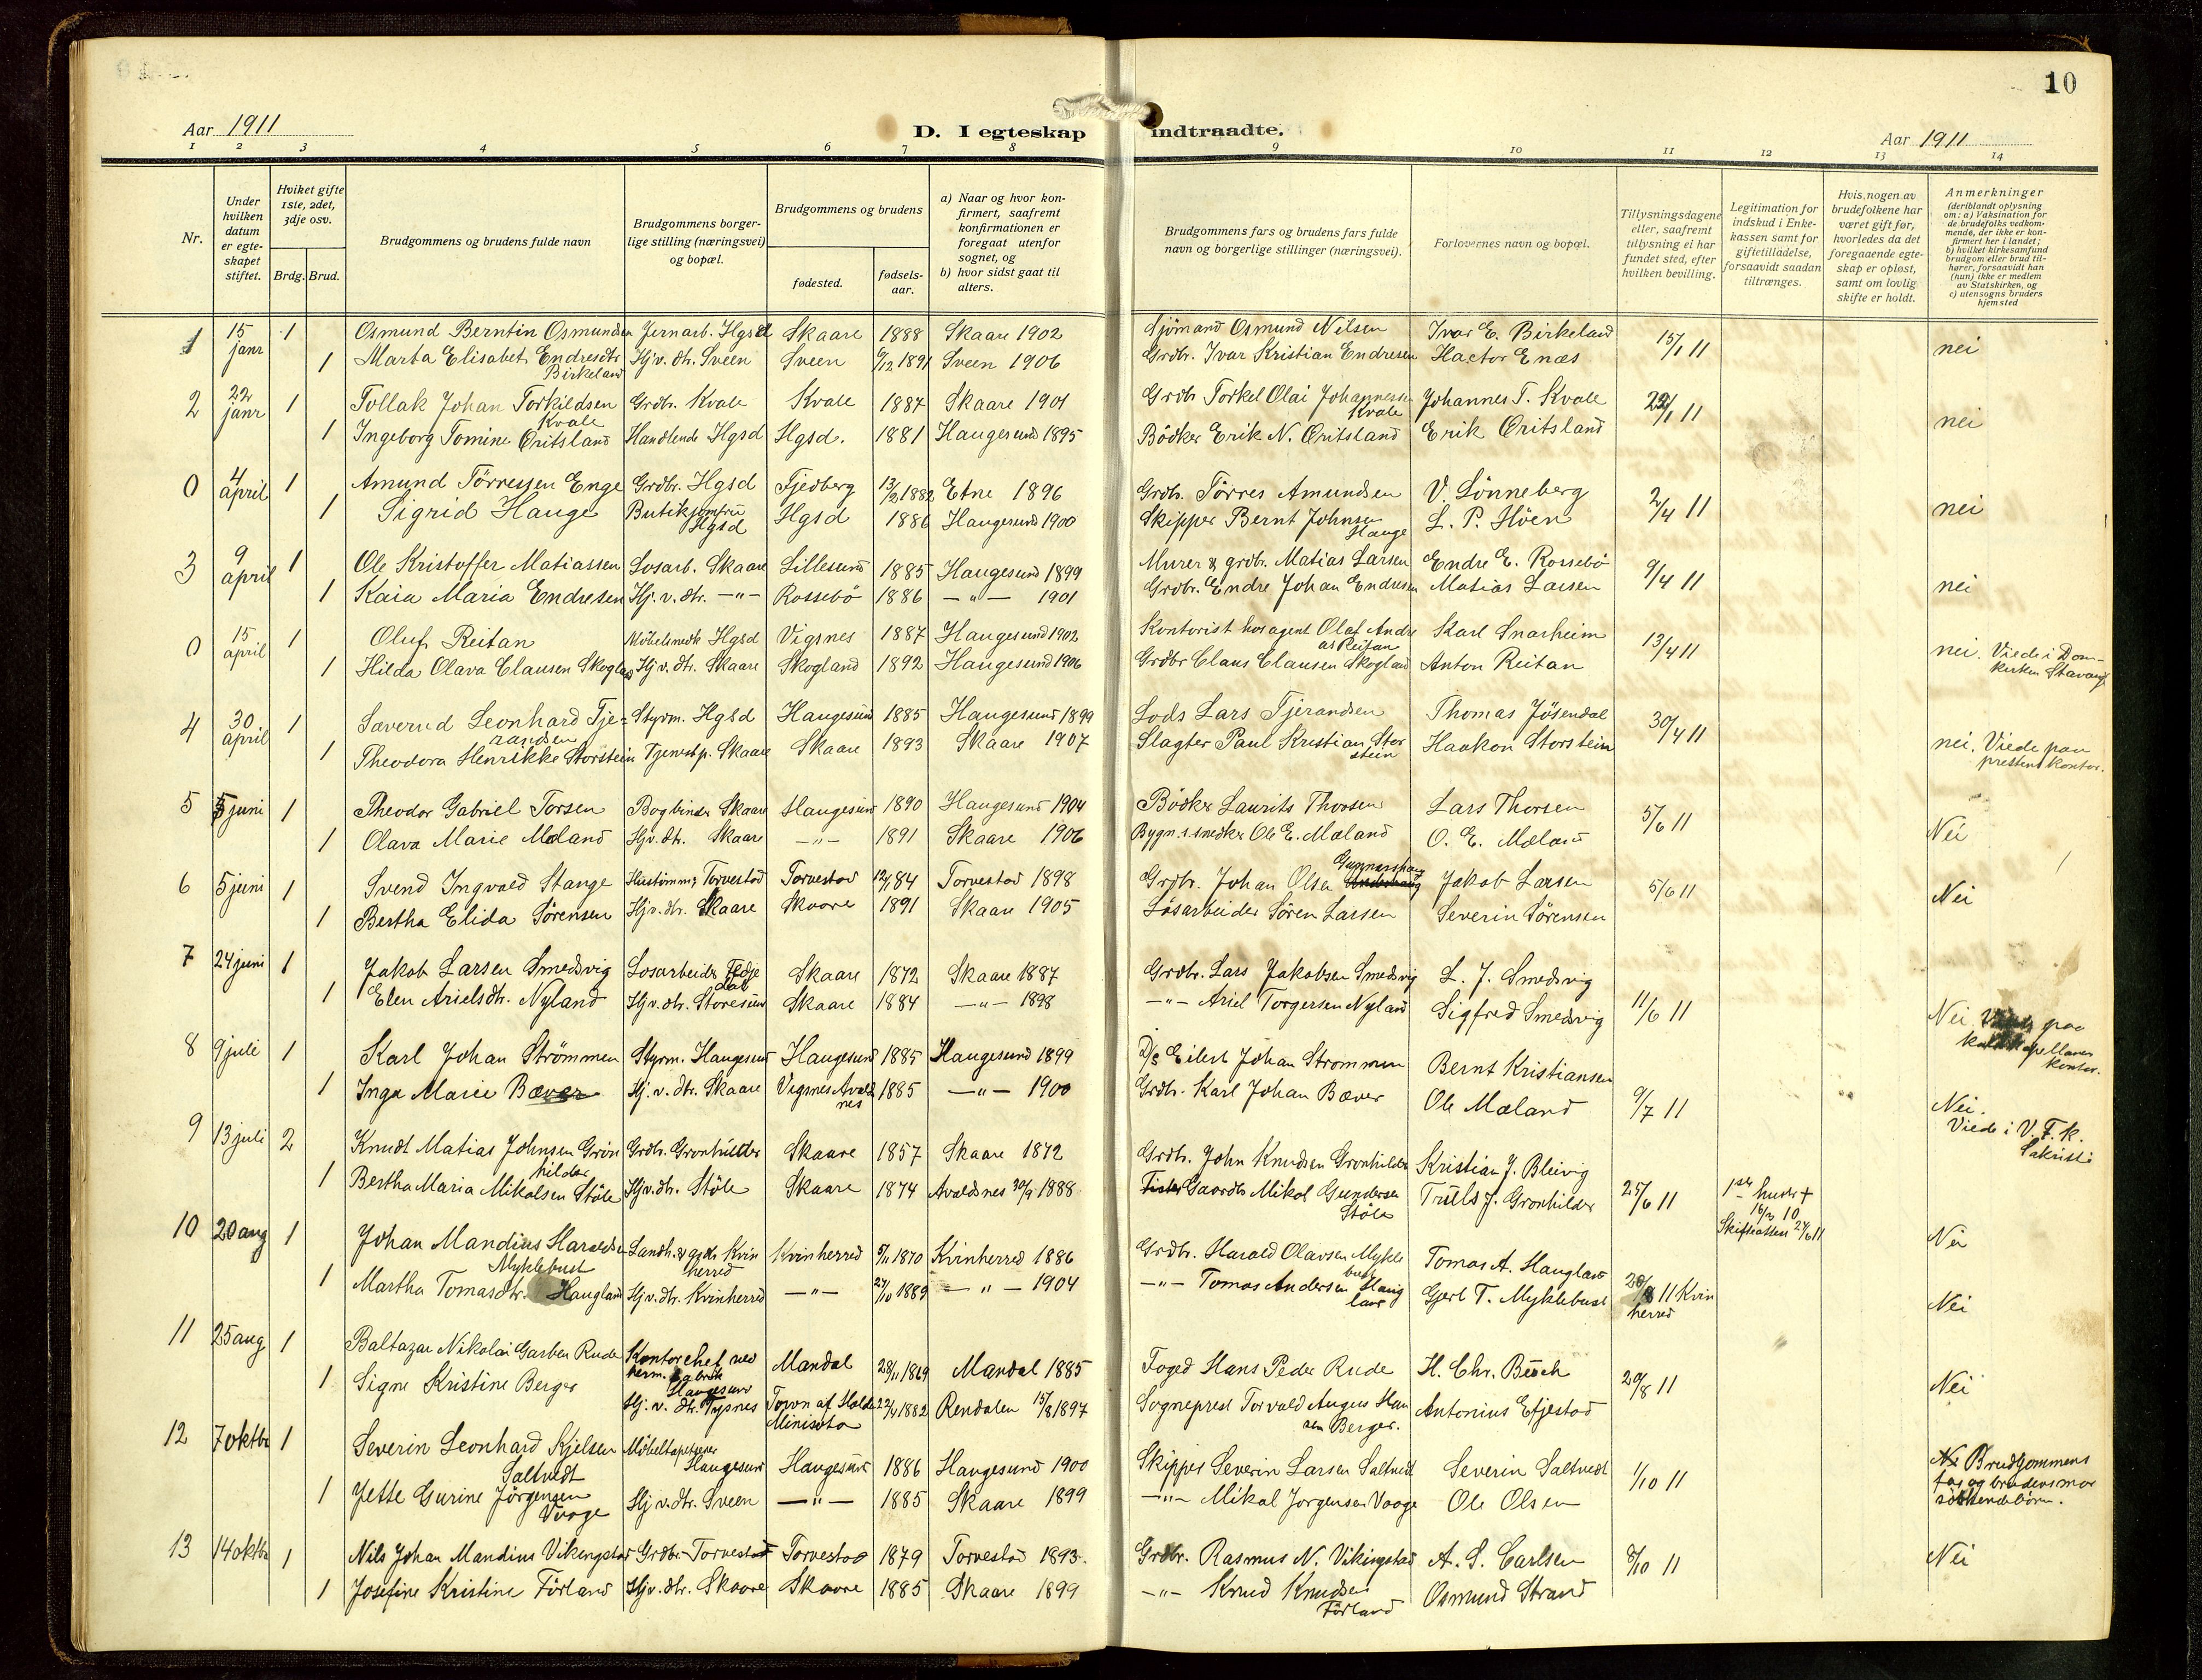 10
Aar 1911
D. I egteskap indtraadte.
Aar 1911
1 2 3 4 5 6 7 8 9 10 11 12 13 14
Nr.
Under hvilken datum er egteskapet stiftet.
Hviket gifte 1ste, 2det, 3dje osv.
Brdg. Brud.
Brudgommens og brudens fulde navn
Brudgommens borgerlige stilling (næringsvei) og bopæl.
Brudgommens og brudens
fødested.
fødselsaar.
a) Naar og hvor konfirmert, saafremt konfirmationen er foregaat utenfor sognet, og
b) hvor sidst gaat til alters.
Brudgommens fars og brudens fars fulde navn og borgerlige stillinger (næringsvei).
Forlovernes navn og bopæl.
Tillysningsdagene eller, saafremt tillysning ei har fundet sted, efter hvilken bevilling.
Legitimation for indskud i Enkekassen samt for giftetilladelse, forsaavidt saadan tiltrænges.
Hvis nogen av brudefolkene har været gift før, hvorledes da det foregaaende egteskap er opløst, samt om lovlig skifte er holdt.
Anmerkninger (deriblandt oplysning om: a) Vaksination for de brudefolks vedkommende, der ikke er konfirmert her i landet; b) hvilket kirkesamfund brudgom eller brud tilhører, forsaavidt han (hun) ikke er medlem av Statskirken, og c) utensogns bruders hjemsted
1 15 janr 1 Osmund Berntin Osmundsen Jernarb. Hgsd Skaare 1888 Skaare 1902 Sjömand Osmund Nilsen Ivar E. Birkeland 15/1 11 nei
1 Marta Elisabet Endresdtr Birkeland Hj.v. dtr. Sveen Sveen 6/12 1891 Sveen 1906 Grdbr. Ivar Kristian Endresen Hactor Enæs
2 22 janr 1 Tollak Johan Torkildsen Kvale Grdbr. Kvale Kvale 1887 Skaare 1901 Grdbr Torkel Olai Johannessen Kvale Johannes T. Kvale 22/1 11 nei
1 Ingeborg Tomine Öritsland Handlende Hgsd Hgsd. 1881 Haugesund 1895 Bödker Erik N. Öritsland Erik Öritsland
0 4 april 1 Amund Törressen Enge Grdbr. Hgsd Fjedberg 13/2 1882 Etne 1896 Grdb. Törres Amundsen V. Lönneberg 2/4 11 nei
1 Sigrid Hauge Butikjomfru Hgsd Hgsd 1886 Haugesund 1900 Skipper Bernt Johnsen Hauge L. P. Höen
3 9 april 1 Ole Kristoffer Matiassen Losarb. Skaare Lillesund 1885 Haugesund 1899 Murer & grdbr. Matias Larsen Endre E. Rossebö 9/4 11 nei
1 Kaia Maria Endresen Hj.v. dtr. -"- Rossebö 1886 -"- 1901 Grdbr. Endre Johan Endresen Matias Larsen
0 15 april 1 Oluf Reitan Möbelsnedk Hgsd Vigsnes 1887 Haugesund 1902 Kontorist hos agent Olaf Andreas Reitan Karl Snarheim 13/4 11 nei. Viede i Domkirken Stavang
1 Hilda Olava Clausen Skogland Hj v. dtr. Skaare Skogland 1892 Haugesund 1906 Grdbr Claus Clausen Skogland Anton Reitan
4 30 april 1 Saverud Leonhard Tjerandsen Styrm. Hgsd Haugesund 1885 Haugesund 1899 Lods Lars Tjerandsen Thomas Jösendal 30/4 11 nei. Viede paa prestens kontor.
1 Theodora Henrikke Storstein Tjenestp. Skaare Skaare 1893 Skaare 1907 Slagter Paul Kristian Storstein Haakon Storstein
5 5 juni 1 Theodor Gabriel Torsen Bogbinder Skaare Haugesund 1890 Haugesund 1904 Bödker Laurits Thorsen Lars Thorsen 5/6 11 Nei
1 Olava Marie Mæland Hjv. dtr. Skaare -"- 1891 Skaare 1906 Bygn.s.snedker Ole E. Mæland O. E. Mæland
6 5 juni 1 Svend Ingvald Stange Hustömm, Torvestad Torvestad 12/1 84 Torvestad 1898 Grdbr. Johan Olsen Gunnarshaug Jakob Larsen 5/6 11 Nei
1 Bertha Elida Sörensen Hjv. dtr. Skaare Skaare 1891 Skaare 1905 Lösarbeider Sören Larsen Severin Sörensen
7 24 juni 1 Jakob Larsen Smedsvig Losarbeider Skaare 1872 Skaare 1887 Grdbr. Lars Jakobsen Smedsvig L. J. Smedsvig 11/6 11 Nei. Viede paa kontor.
1 Elen Arielsdtr. Nyland Hjv. dtr. Storesund Skaare 1884 -"- 1898 -"- Ariel Torgersen Nyland Sigfred Smedsvig
8 9 juli 1 Karl Johan Strömmen Styrm. Haugesund Haugesund 1885 Haugesund 1899 D/s Eilert Johan Strömmen Bernt Kristiansen 9/7 11 Nei. Viede i V. F. k. Sakristi
1 Inga Marie Bæver Hj. v. dtr. Skaare Vigsnes Avaldsnes 1885 -"- 1900 Grdbr. Karl Johan Bæver Ole Mæland
9 13 juli 2 Knudt Matias Johnsen Grönhilder Grdbr. Gronhilder Skaare 1857 Skaare 1872 Grdbr. John Knudsen Gronhilder Kristian J. Bleivig 25/6 11 1ste hustr + 16/3 10 Skifteattest 24/6 11 Nei
1 Bertha Maria Mikalsen Stöle Hjv. dtr. Stöle Skaare 1874 Avaldsnes 30/9 1888 Gaardbr Mikal Gundersen Stöle Truls J. Gronhilder
10 20 aug 1 Johan Mandius Haraldsen Myklebust Landh. & grdbr Kvinherred Kvinherred 5/11 1870 Kvinherred 1886 Grdbr. Harald Olavsen Myklebust Tomas A. Haugland 20/8 11 Kvinherred Nei
1 Martha Tomasdtr. Haugland Hjv. dtr. Kvinherred -"- 27/10 1889 -"- 1904 -"- Tomas Andersen Haugland Gjert T. Myklebust
11 25 aug 1 Baltazar Nikolai Garben Rude Kontorchef ved herm.fabrik Haugesund Mandal 28/11 1869 Mandal 1885 Foged Hans Peder Rude H. Chr. Buch 20/8 11 Nei
1 Signe Kristine Berger Hj. v. dtr. Tysnes Town af Holde Minisota 22/4 1882 Rendalen 15/8 1897 Sogneprest Torvald August Hansen Berger. Antonius Efjestad
12 7 oktbr 1 Severin Leonhard Kjelsen Saltvedt Möbeltapetserer Haugesund Haugesund 1886 Haugesund 1900 Skipper Severin Larsen Saltvedt Severin Saltvedt 1/10 11 Brudgommens far og brudens mor söskendebörn.
1 Jette Gurine Jörgensen Vaage Hj v. dtr. Sveen -"- 1885 Skaare 1899 -"- Mikal Jorgensen Vaage Ole Olsen
13 14 oktbr 1 Nils Johan Mandius Vikingstad Grdbr. Torvestad Torvestad 1879 Torvestad 1893. Grdbr. Rasmus N. Vikingstad A. S. Carlsen 8/10 11 Nei
1 Josefine Kristine Förland Hjv. dtr. Skaare Skaare 1885 Skaare 1899 -"- Knud Knudsen Förland Osmund Strand